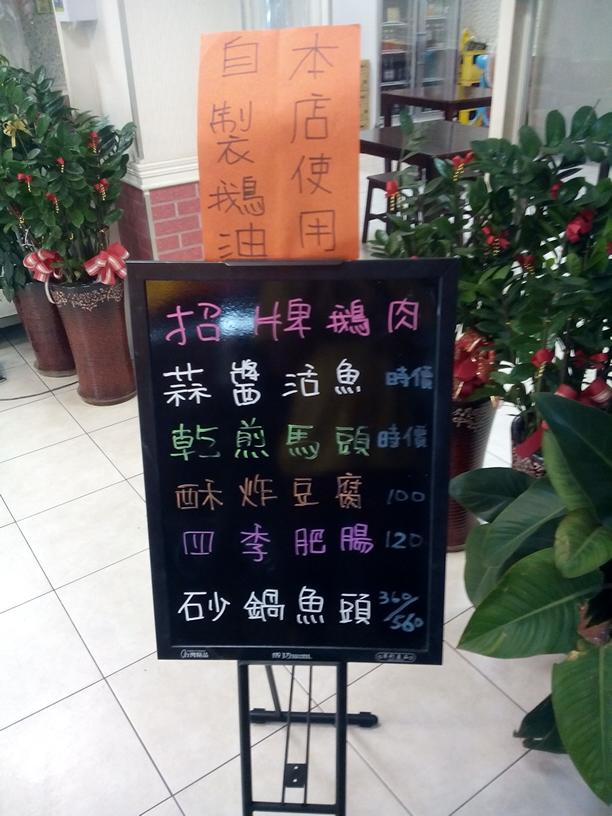 本店使用
自製鵝油
招牌鵝肉
蒜醬活魚 時價
乾煎馬頭 時價
酥炸豆腐 100
四季肥腸 120
砂鍋魚頭 360/560